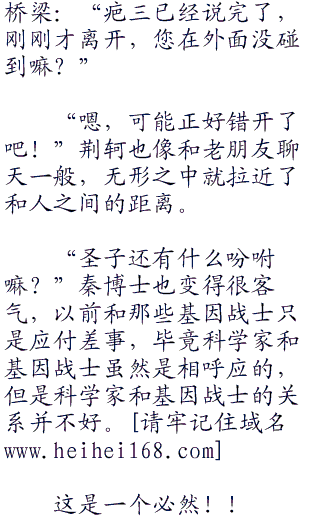 桥梁：“疤三已经说完了，
刚刚才离开，您在外面没碰
到嘛？”
“嗯，可能正好错开了
吧！”荆轲也像和老朋友聊
天一般，无形之中就拉近了
和人之间的距离。
“圣子还有什么吩咐
嘛？”秦博士也变得很客
气，以前和那些基因战士只
是应付差事，毕竟科学家和
基因战士虽然是相呼应的，
但是科学家和基因战士的关
系并不好。[请牢记住域名
www.heihei168.com]
这是一个必然！！